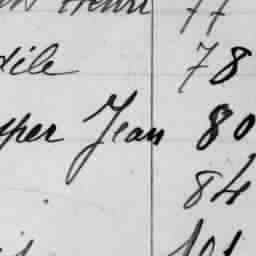 Henri 77
dile 78
per Jean 80
84
101